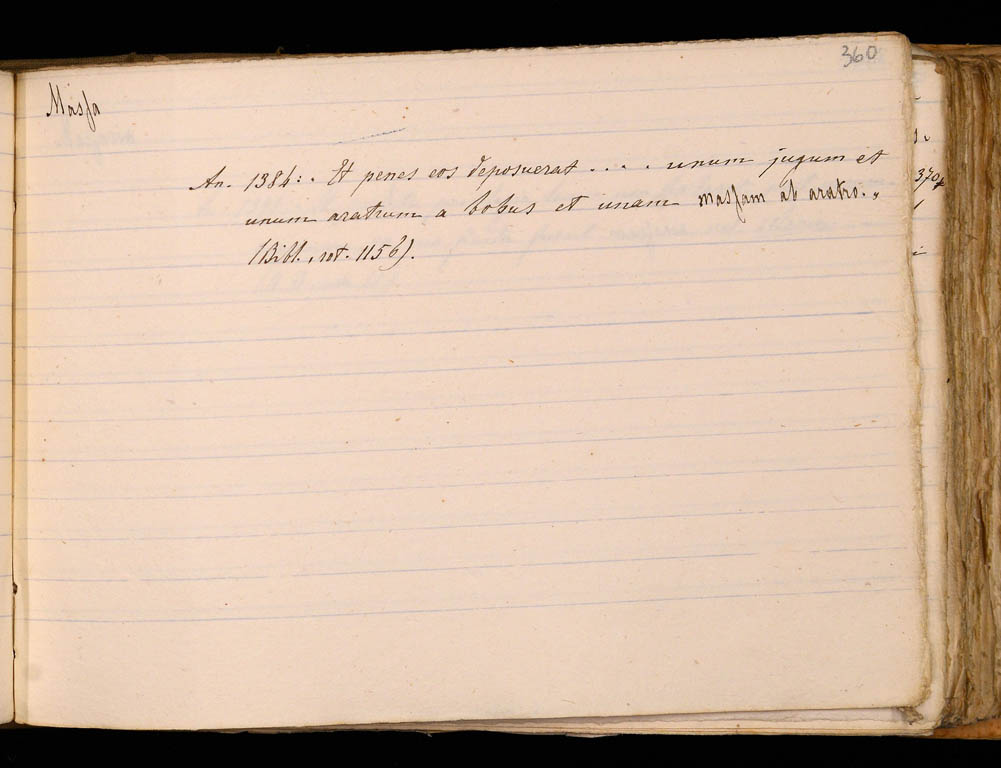 360
Massa
An. 1384: „ Et penes eos deposuerat .... unum jugum et
unum aratrum a bobus et unam massam ab aratro. „
(Bibl., rot. 1156).
370